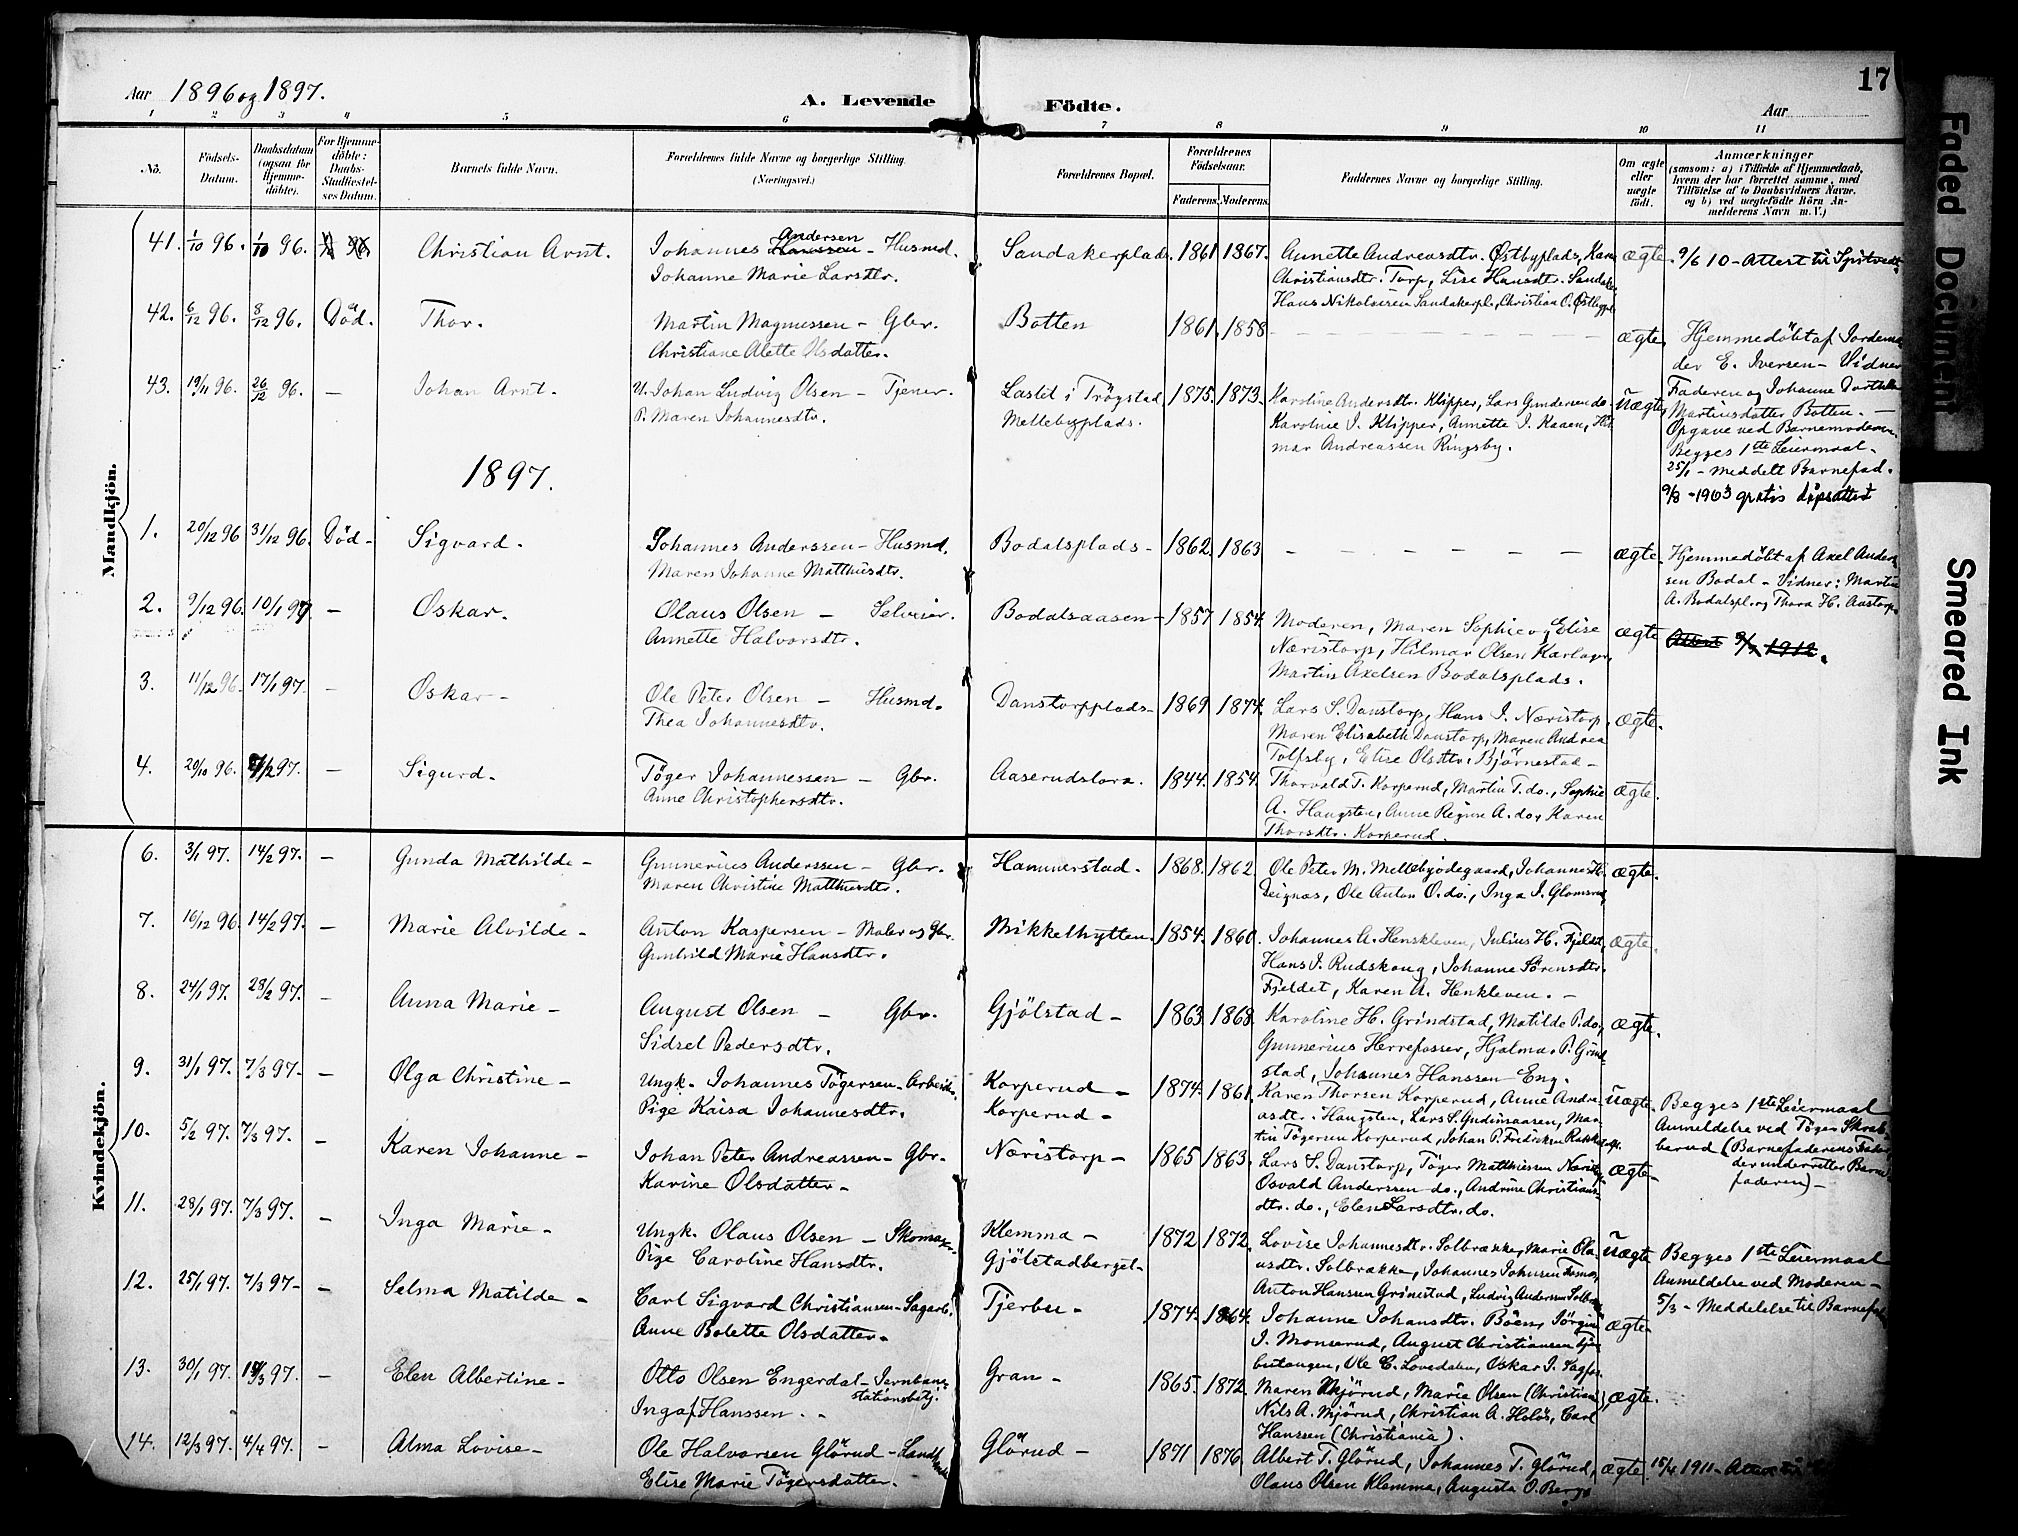 Aar 1896 og 1897.
A. Levende Födte.
Aar
17
1 2 3 4 5 6 7 8 9 10 11
No.
Födsels-Datum.
Daabsdatum (ogsaa for Hjemmedöbte).
For Hjemmedöbte: Daabs-Stadfæstelses Datum.
Barnets fulde Navn.
Forældrenes fulde Navne og borgerlige Stilling. (Næringsvei.)
Forældrenes Bopæl.
Forældrenes Födselsaar.
Faderens. Moderens.
Faddernes Navne og borgerlige Stilling.
Om ægte eller uægte født.
Anmærkninger
(saasom: a) i Tilfælde af Hjemmedaab, hvem der har forrettet samme, med Tilföielse af to Daabsvidners Navne, og b) ved uegtefödte Börn Anmelderens Navn m. V.)
Mandkjön.
41. 1/10 96. 1/10 96. Christian Arnt. Johannes Hanssen Andersen - Husmd. Sandakerplads. 1861 1867. Annette Andreasdtr. Østbyplads, Karen ægte. 9/6 10 - Attest til
Johanne Marie Larsdtr. Christiansdtr. Torp, Lise Hansdtr. Sandaker
Hans Nikolaisen Sandakerpl., Christian O. Østbypl.
42. 6/12 96. 8/12 96. Död. Thor. Martin Magnussen - Gbr. Botten 1861. 1858 ægte. Hjemmedöbt af Jordemo
Christiane Alette Olsdatter. der E. Iversen - Vidner
43. 19/11 96. 26/12 96. - Johan Arnt. U. Johan Ludvig Olsen - Tjener. Lastd i Trögstad 1875. 1873. Karoline Andersdtr. Klipper, Lars Gundersen do. Uægte, Faderen og Johanne Dorthea
P. Maren Johannesdtr. Mellebyplads. Karoline J. Klipper, Annette J. Kaaen, Hil Martinsdatter Botten. -
mar Andreassen Ringsby. Opgave ved Barnemoderen.
Begges 1ste Leiermaal.
25/1 - meddelt Barnefad.
9/8 - 1903 gratis dåpsattest
1897.
1. 20/12 96 31/12 96. Död - Sigvard. Johannes Anderssen - Husmd. Bodalsplads - 1862. 1863 ægte. Hjemmedöbt af Axel Anders
Maren Johanne Matthisdtr. sen Bodal - Vidner: Martin
2. 9/12 96. 10/1 97 - Oskar. Olaus Olsen - Selveier. Bodalsaasen - 1857 1854. Moderen, Maren Sophie og Elise ægte A. Bodalspl. og Thora H. Aastorp.
Annette Halvorsdtr. Næristorp, Hilmar Olsen Karlager, Attest 9/7 1912.
Martin Axelsen Bodalsplads.
3. 11/12 96. 17/1 97. - Oskar - Ole Peter Olsen - Husmd. Danstorpplads - 1869 1874. Lars S. Danstorp, Hans J. Næristorp, ægte.
Thea Johannesdtr. Maren Elisabeth Danstorp, Maren Andrea
Tolfsby, Elise Olsdtr. Björnestad -
4. 20/10 96. 7/2 97. - Sigurd. Töger Johannessen - Gbr. Aaserudstora. 1844. 1854. Thorvald T. Korperud, Martin T. do., Sophie ægte.
Anne Christophersdtr. A. Haugsten, Anne Regine A. do, Karen
Thorsdtr. Korperud.
Kvindekjön.
6. 3/1 97. 14/2 97. - Gunda Mathilde - Gunnerius Anderssen - Gbr. Hammerstad. 1868. 1862 Ole Peter M. Mellebyödegaard, Johannes H. ægte.
Maren Christine Matthisdtr. Deignæs, Ole Anton O. do., Inga J. Glomsrud
7. 16/12 96. 14/2 97. - Marie Alvilde - Anton Kaspersen - Maler og Gbr. Mikkelhytten. 1854. 1860. Johannes A. Henkleven, Julius H. Fjeldet, ægte.
Gunhild Marie Hansdtr. Hans J. Rudskoug, Johanne Sörensdtr.
Fjeldet, Karen A. Henkleven. -
8. 24/1 97. 28/2 97. - Anna Marie - August Olsen - Gbr. Gjölstad - 1863 1868. Karoline H. Grindstad, Matilde P. do, ægte.
Sidsel Pedersdtr. Gunnerius Herrefosser, Hjalmar P. Grind
stad, Johannes Hanssen Eng.
9. 31/1 97. 7/3 97 - - Olga Christine - Ungk. Johannes Tögersen - Arbeider. Korperud - 1874. 1861. Karen Thorsen Korperud, Anne Andre Uægte. Begges 1ste Leiermaal
Pige Kaisa Johannesdtr. Korperud - asdtr. Haugsten, Lars S. Gudimaasen, Mar Anmeldelse ved Töger Skrab
tin Tögersen Korperud, Johan P. Fredriksen Rakkestad. berud (Barnefaderens Fader
der underretter Barne
faderen) -
10. 5/2 97. 7/3 97. - Karen Johanne - Johan Peter Andreassen - Gbr. Næristorp - 1865 1863. Lars S. Danstorp, Töger Matthiessen Næristp. ægte -
Karine Olsdatter - Osvald Anderssen do., Andrine Christians
dtr. do., Elen Larsdtr. do.
11. 28/1 97. 7/3 97. - Inga Marie - Ungk. Olaus Olsen - Skomager. Klemma - 1872 1872. Lovise Johannesdtr. Solbrække, Marie Ola Uægte Begges 1ste Leiermaal
Pige Caroline Hansdtr. Gjölstadberget - usdtr. Solbrække, Johannes Johnsen Anmeldelse ved Moderen -
Anton Hansen Grinestad, Ludvig Andersen 5/3 - Meddelelse til Barnefad
12. 25/1 97. 7/3 97 - - Selma Matilde - Carl Sigvard Christiansen - Sagarb. Tjerbu - 1874. 1864. Johanne Johansdtr. Böen, Jörgine ægte -
Anne Bolette Olsdatter - J. Monserud, August Christiansen
butangen, Ole C. Lovedalen, Oskar J. Sagfos
13. 30/1 97. 14/3 97. - Elen Albertine - Otto Olsen Engerdal - Jernbane stationsbetj. Gran - 1865. 1872. Maren Mjörud, Marie Olsen (Christiania), ægte.
Inga f. Hanssen. Nils A. Mjörud, Christian A. Holös, Carl
Hanssen (Christiania).
14. 12/3 97. 4/4 97. - Alma Lovise - Ole Halvorsen Glörud - Landh Glörud - 1871 1876 Albert T. Glörud, Johannes T. Glörud, ægte. 15/4 1911 - Attest til
Elise Marie Tögersdatter. Olaus Olsen Klemma, Augusta O. Berger
Faded Document
Smeared Ink